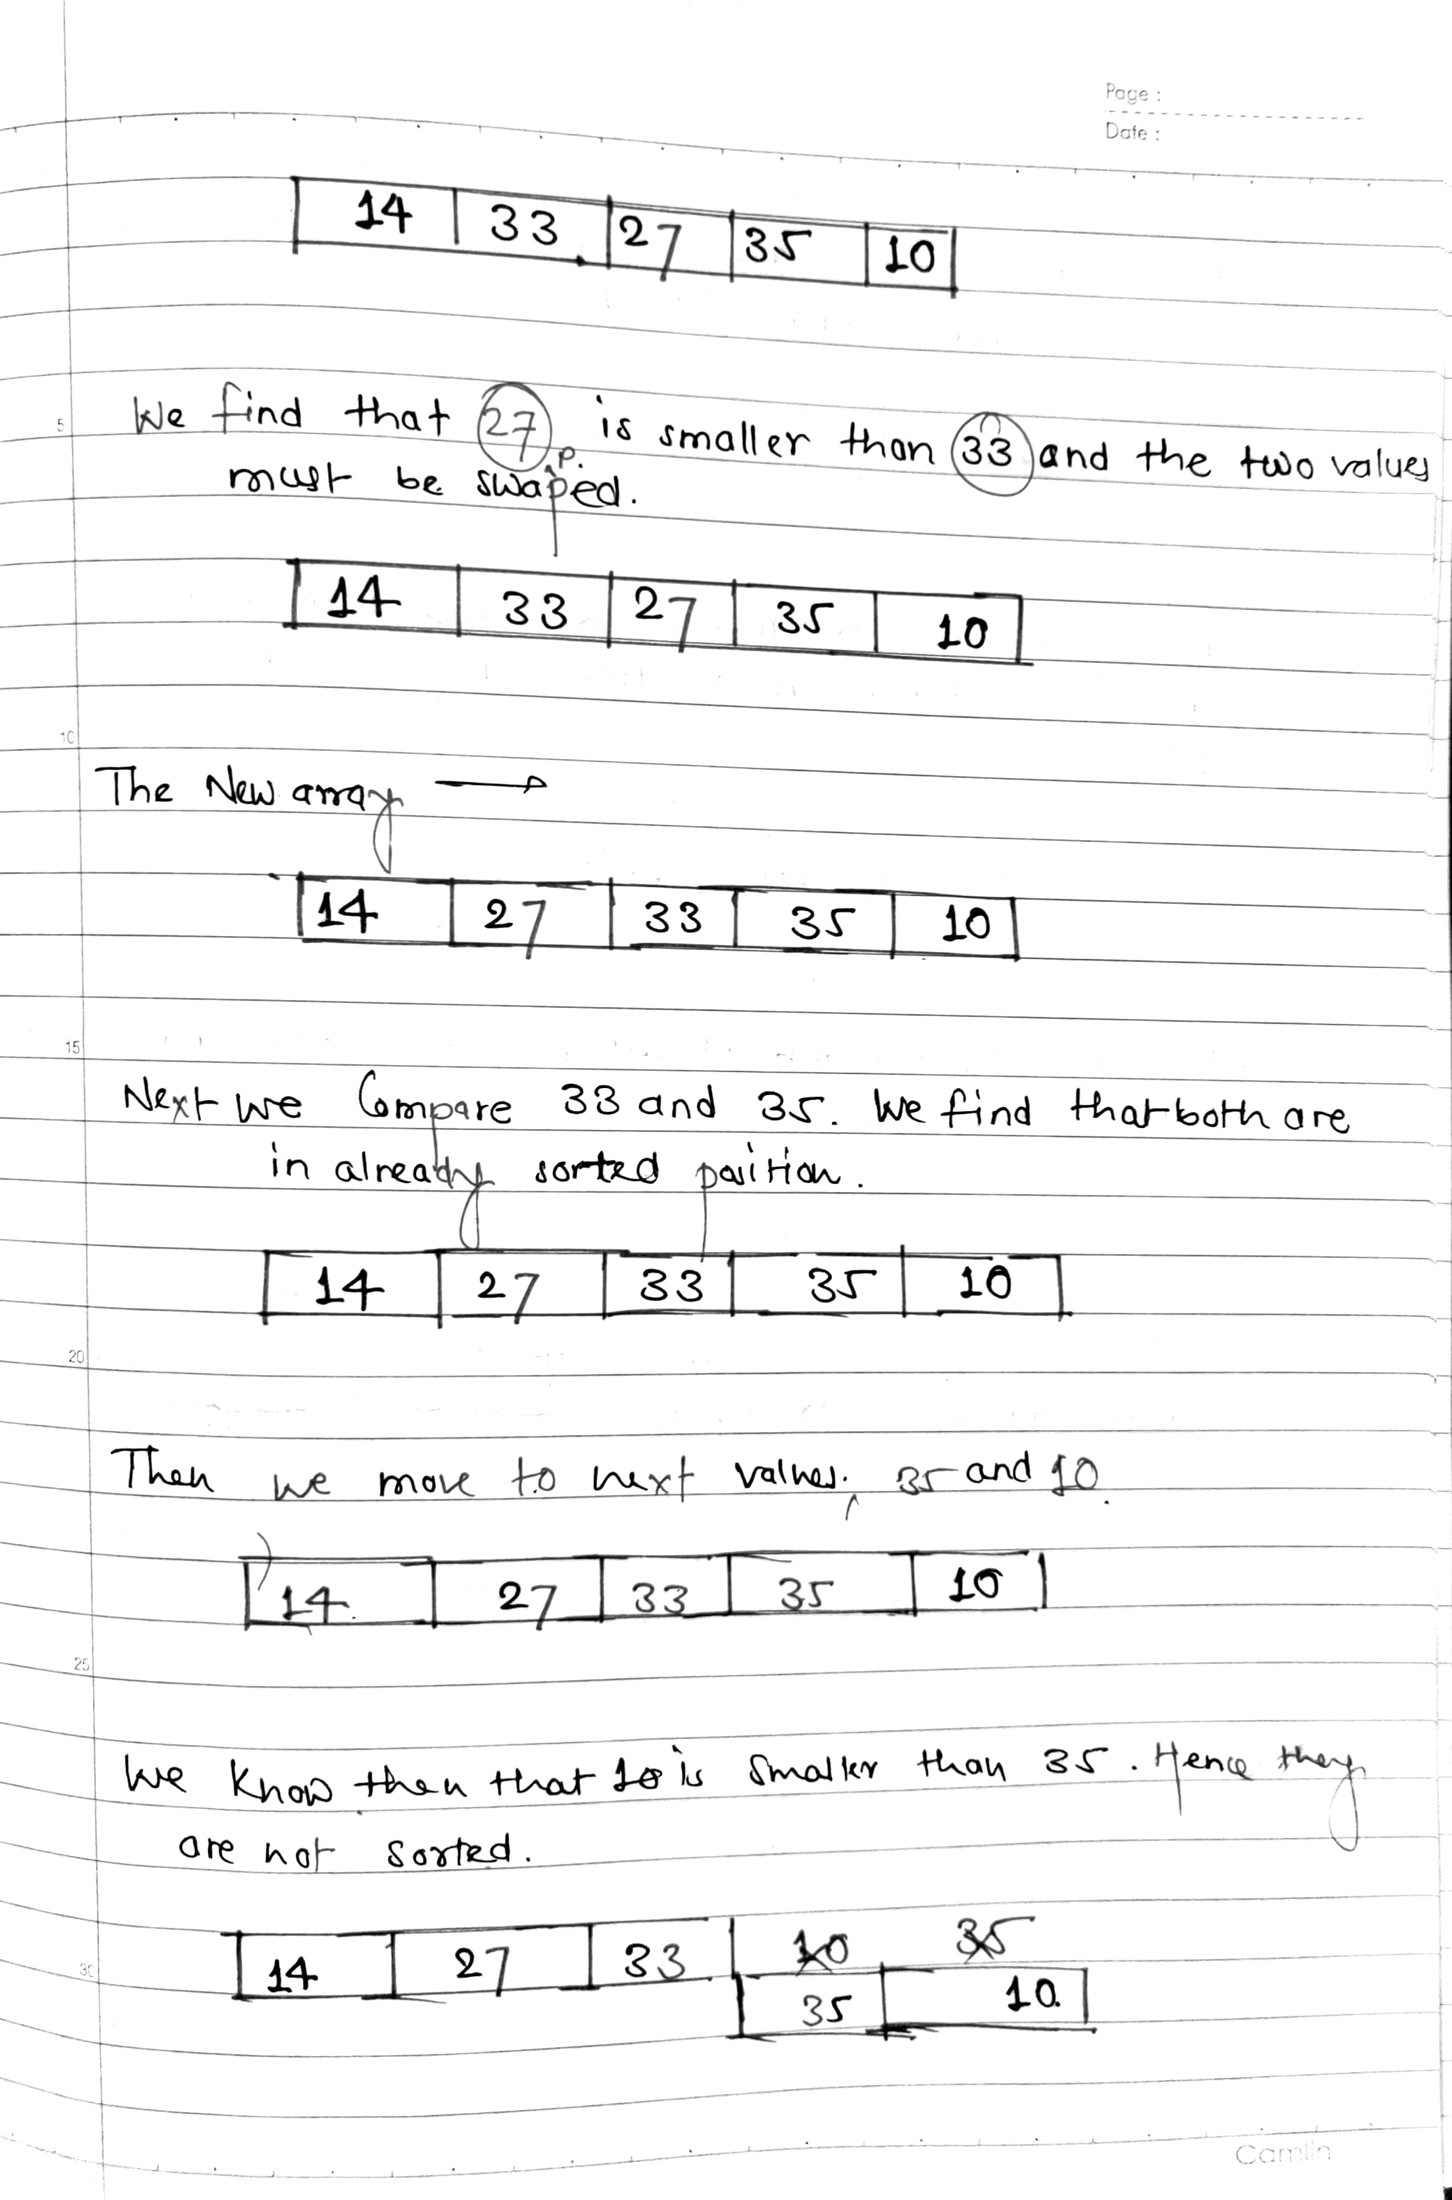 Page :
Date :
14 33 27 35 10
5
We find that 27 is smaller than 33 and the two values
p.
must be swaped.
14 33 27 35 10
10
The New array
14 27 33 35 10
15
Next we Compare 33 and 35. We find that both are
in already sorted position.
14 27 33 35 10
20
Then we move to next values, 35 and 10.
14 27 33 35 10
25
We know then that 10 is smaller than 35. Hence they
are not sorted.
10 35
30
14 27 33 35 10
Camlin